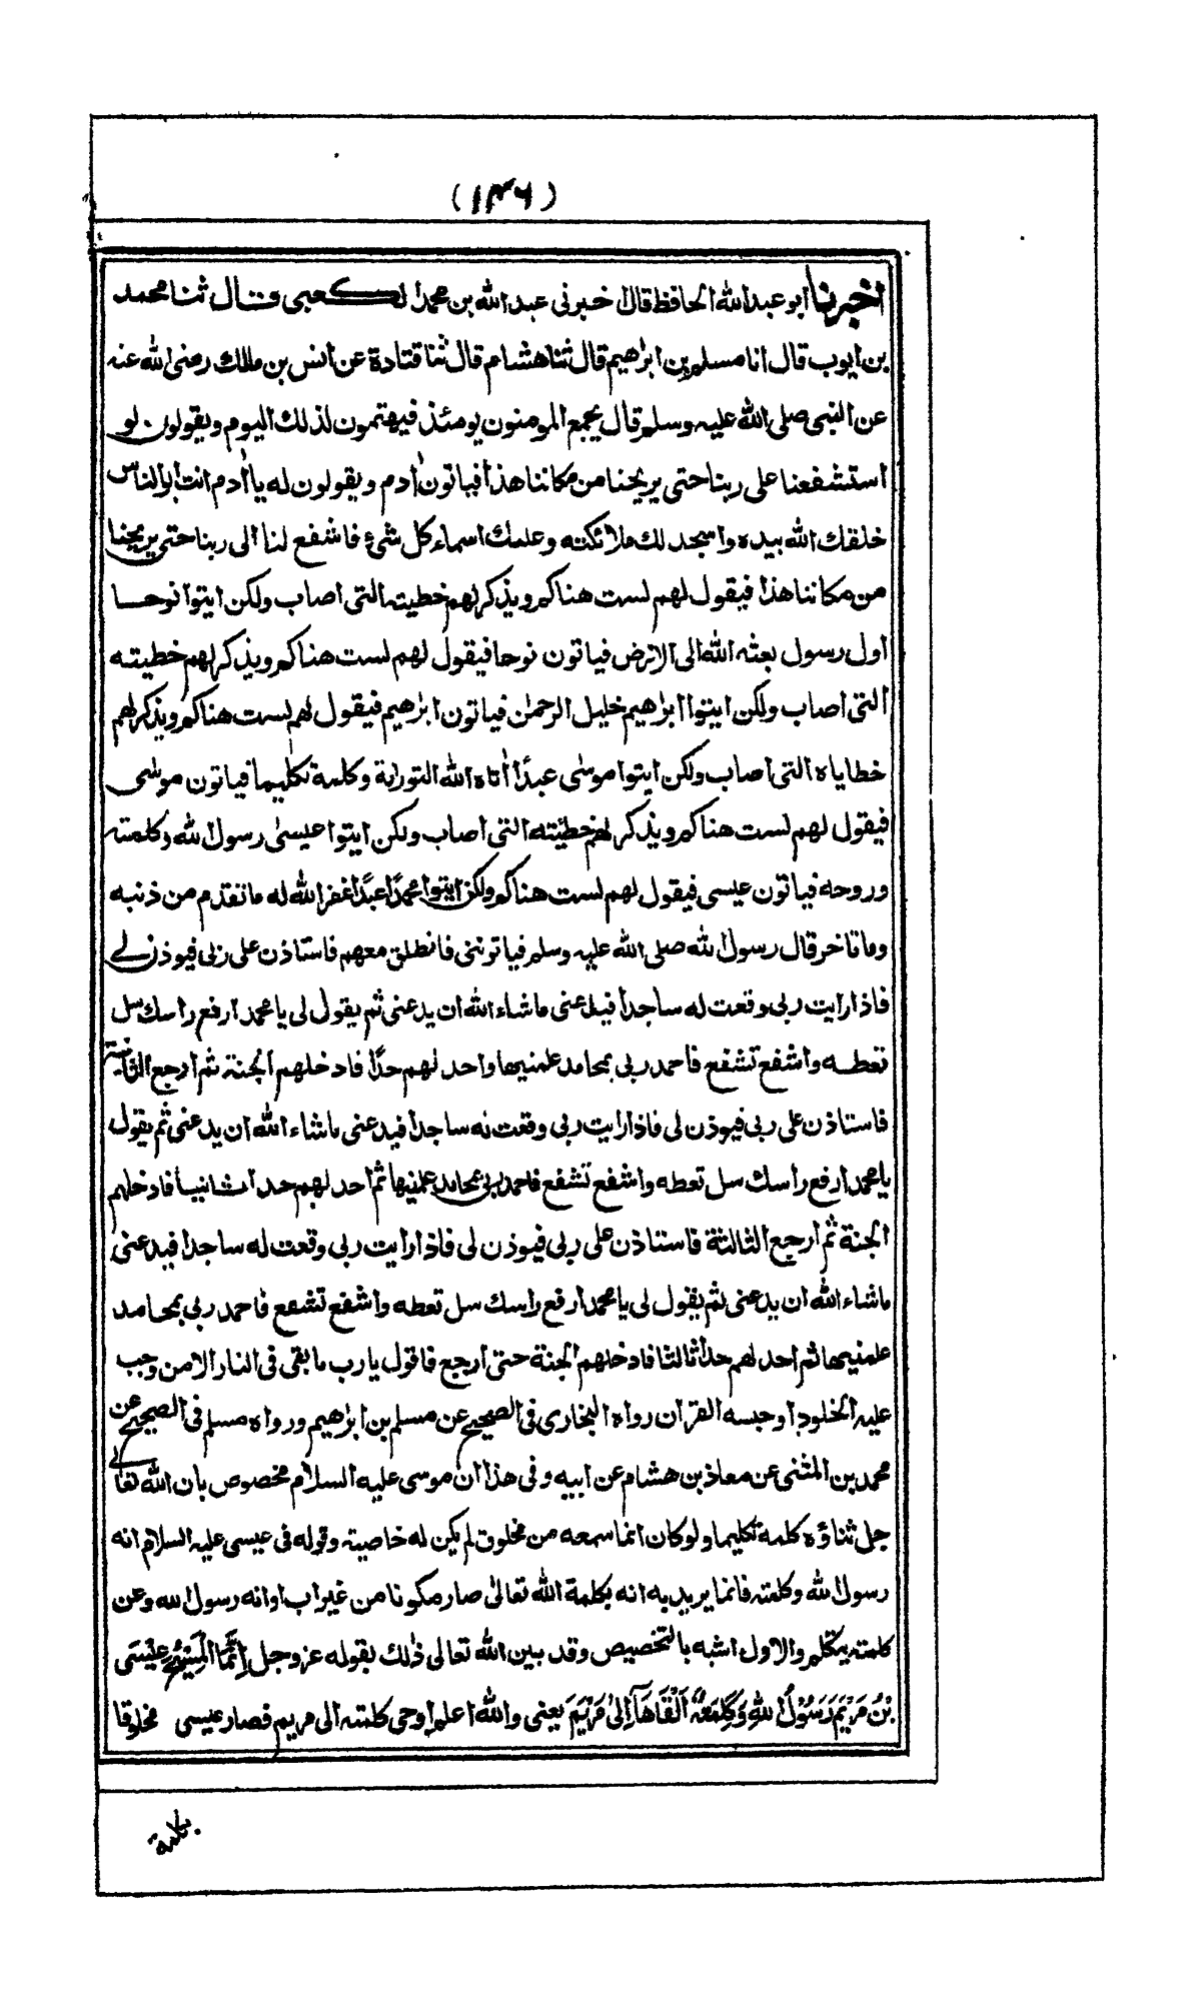 (١٣٦)
اخبرنا ابو عبد الله الحافظ قال اخبرنى عبد الله بن محمد الكعبى قال ثنا محمد
بن ايوب قال انا مسلم بن ابرٰهيم قال ثنا هشام قال ثنا قتادة عن انس بن مالك رضى الله عنه
عن النبى صلى الله عليه وسلم قال يجمع المومنون يومئذ فيهتمون لذلك اليوم ويقولون لو
استشفعنا على ربنا حتى يريحنا من مكاننا هذا فياتون اٰدم ويقولون له يا اٰدم انت ابو الناس
خلقك الله بيده واسجد لك ملائكته وعلمك اسماء كل شئ فاشفع لنا الى ربنا حتى يريحنا
من مكاننا هذا فيقول لهم لست هناكم ويذكر لهم خطيته التى اصاب ولكن ايتوا نوحا
اول رسول بعثه الله الى الارض فياتون نوحا فيقول لهم لست هناكم ويذكر لهم خطيته
التى اصاب ولكن ايتوا ابرٰهيم خليل الرحمٰن فياتون ابرٰهيم فيقول لهم لست هناكم ويذكر لهم
خطاياه التى اصاب ولكن ايتوا موسٰى عبدًا اٰتاه الله التوراية وكلمه تكليما فياتون موسٰى
فيقول لهم لست هناكم ويذكر لهم خطيئته التى اصاب ولكن ايتوا عيسىٰ رسول الله وكلمته
وروحه فياتون عيسى فيقول لهم لست هناكم ولكن ايتوا محمدًا عبدًا غفر الله له ما تقدم من ذنبه
وما تاخر قال رسول لله صلى الله عليه وسلم فياتوننى فانطلق معهم فاستاذن على ربى فيوذن لے
فاذا رايت ربى وقعت له ساجدا فيدعنى ماشاء الله ان يدعنى ثم يقول لى يا محمد ارفع راسك سل
تعطه واشفع تشفع فاحمد ربى بمحامد علمنيها واحد لهم حدًا فادخلهم الجنة ثم ارجع الثانية
فاستاذن على ربى فيوذن لى فاذا رايت ربى وقعت له ساجدا فيدعنى ماشاء الله ان يدعنى ثم يقول
يا محمد ارفع راسك سل تعطه واشفع تشفع فاحمد ربى بمحامد علمنيها ثم احد لهم حدا ثانيا فادخلهم
الجنة ثم ارجع الثالثة فاستاذن على ربى فيوذن لى فاذا رايت ربى وقعت له ساجدا فيدعنى
ماشاء الله ان يدعنى ثم يقول لى يا محمد ارفع راسك سل تعطه واشفع تشفع فاحمد ربى بمحامد
علمنيها ثم احد لهم حدا ثالثا فادخلهم الجنة حتى ارجع فاقول يا رب ما بقى فى النار الا من وجب
عليه الخلود او حبسه القرآن رواه البخارى فى الصحيح عن مسلم بن ابرٰهيم ورواه مسلم فى الصحيح عن
محمد بن المثنى عن معاذ بن هشام عن ابيه وفى هذا ان موسى عليه السلام مخصوص بان الله تعالے
جل ثناؤه كلمه تكليما ولو كان انما سمعه من مخلوق لم يكن له خاصية وقوله فى عيسى عليه السلام انه
رسول الله وكلمته فانما يريد به انه بكلمة الله تعالىٰ صار مكونا من غير اب او انه رسول الله وعن
كلمته يتكلم والاول اشبه بالتخصيص وقد بين الله تعالى ذٰلك بقوله عز وجل اِنَّمَا الْمَسِيْحُ عِيْسَى
بْنُ مَرْيَمَ رَسُوْلُ اللهِ وَكَلِمَتُهٗ اَلْقَاهَآ اِلىٰ مَرْيَمَ يعنى والله اعلم اوحى كلمته الى مريم فصار عيسى مخلوقا
بكلمة